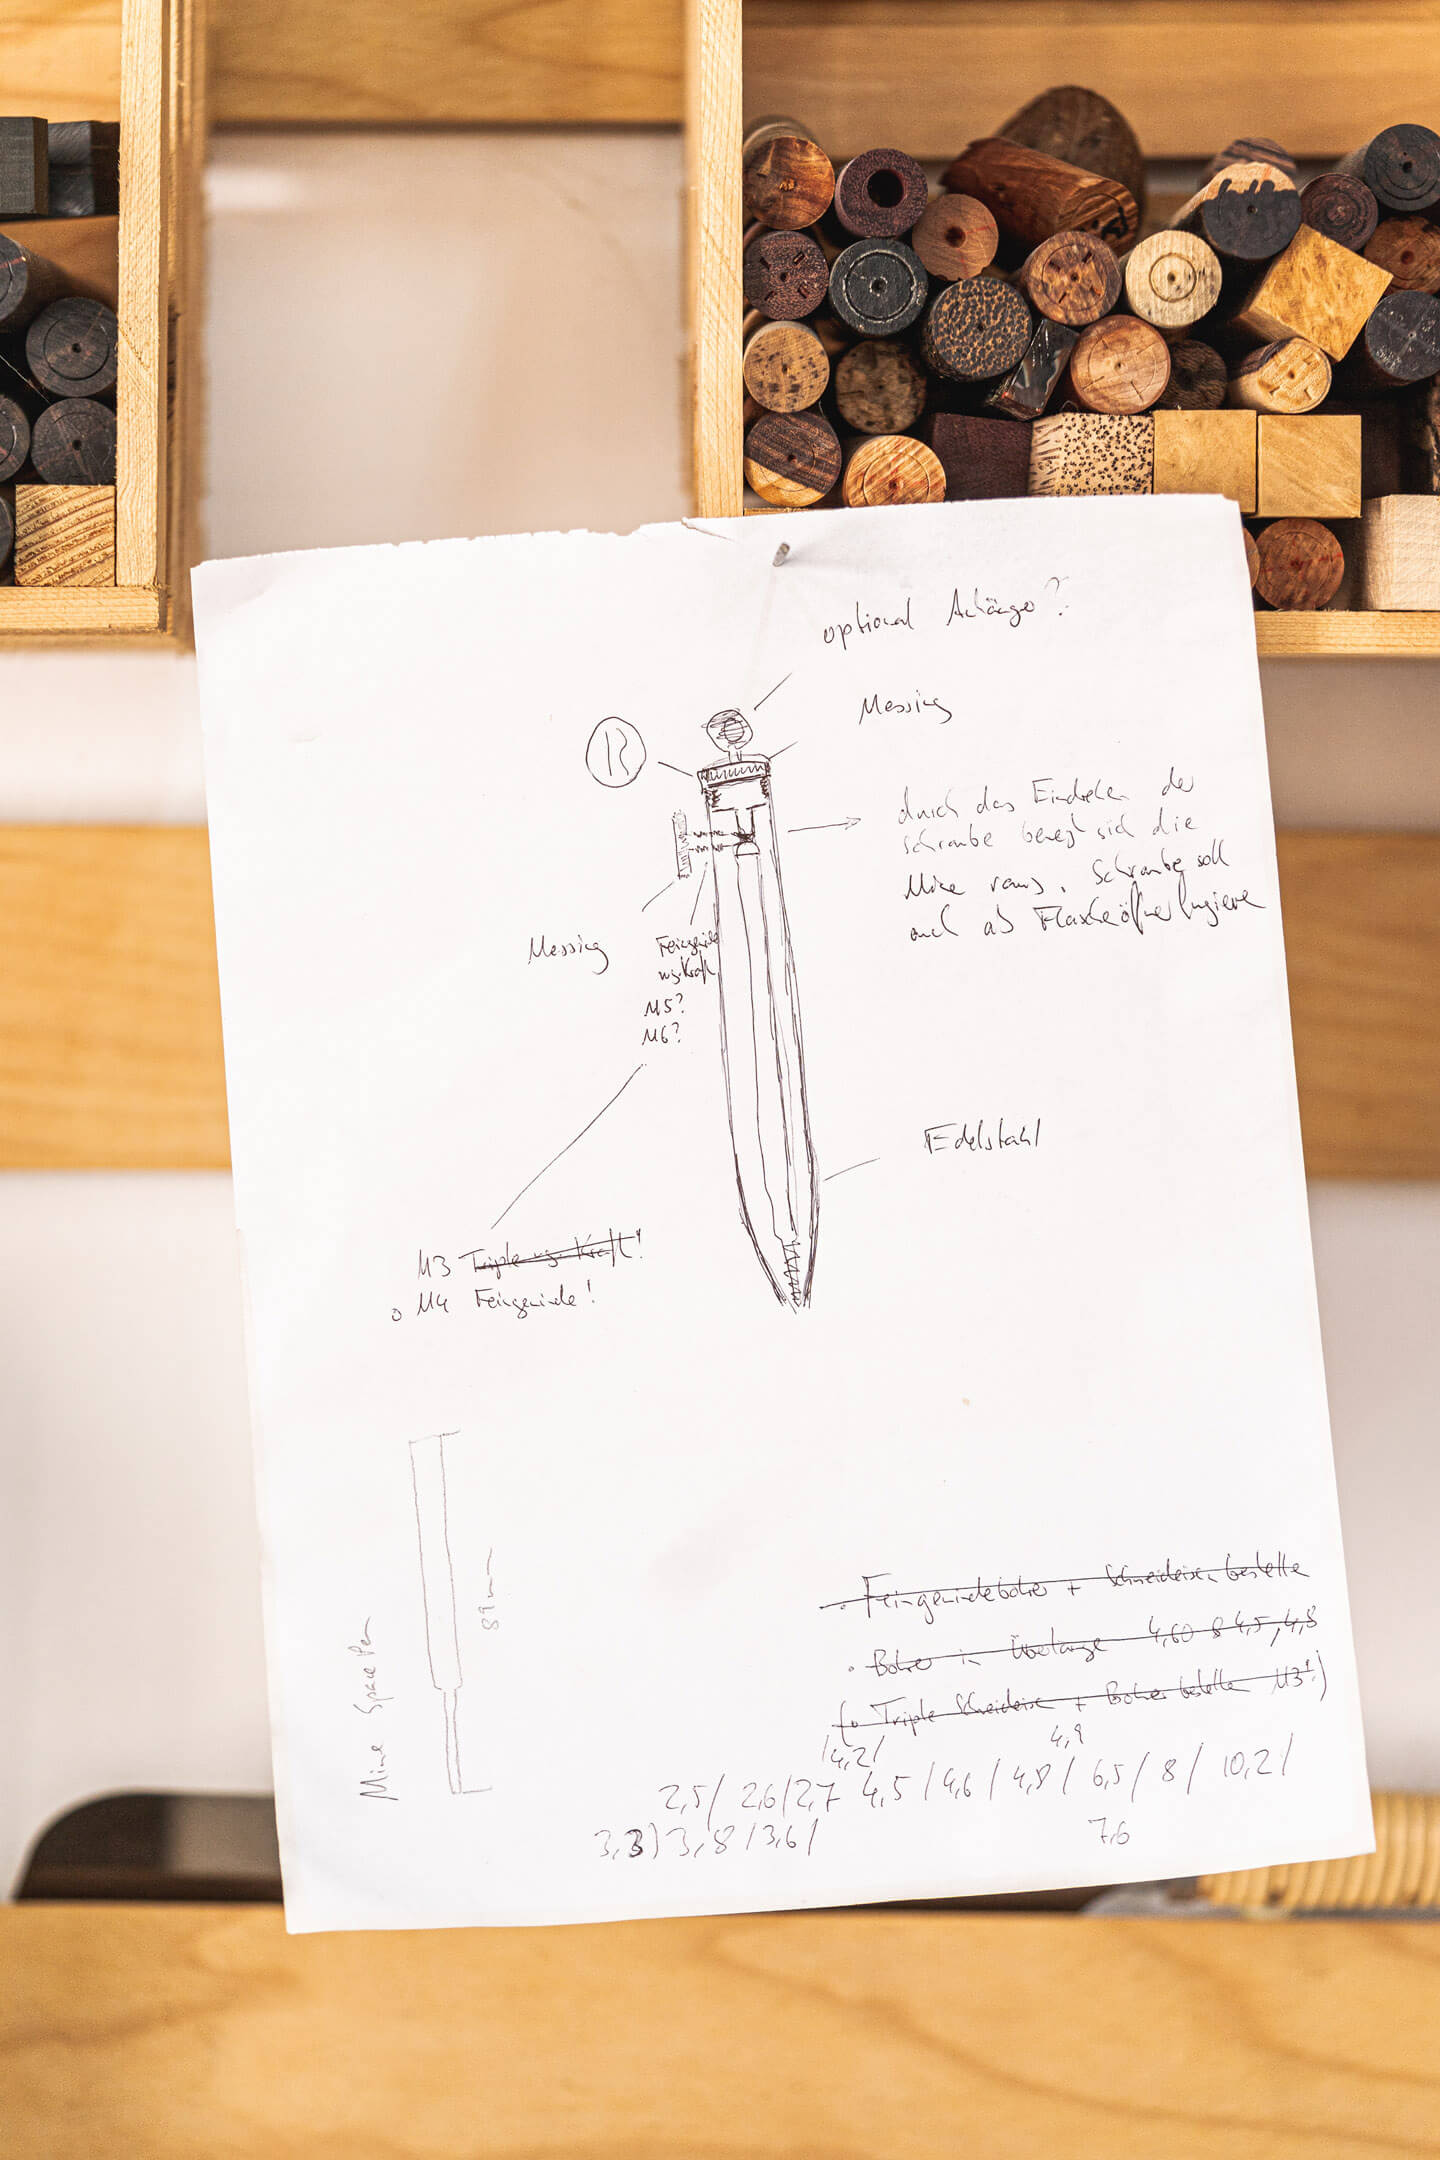 optional Anhänger?
Messing
R
durch das Eindrehen der
Schraube bewegt sich die
Mine raus. Schraube soll
auch als Flaschenöffner fungieren
Messing
Feingewinde
wg. Kraft
M5?
M6?
Edelstahl
M3 Triple wg. Kraft!
o M4 Feingewinde!
Mine Space Pen
89mm
· Feingewindebohrer + Schneideisen bestellen
· Bohrer in Überlänge 4,60 & 4,5, 4,8
(o Triple Schneideisen + Bohrer bestellen M3!)
/4,2/ 4,9
2,5/ 2,6/2,7 4,5/4,6/ 4,8/ 6,5/ 8/ 10,2/
3,3) 3,8/3,6/ 7,6